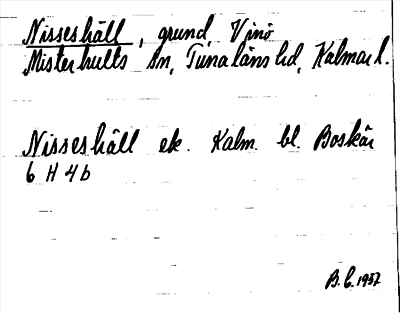 Nisseshäll, grund, Vinö
Misterhults sn, Tunaläns hd, Kalmar l.
Nisseshäll ek. Kalm. bl. Boskär
6 H 4b
B.C. 1937